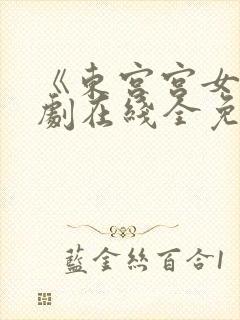 《東宮宮女
劇在綫全免
藍金絲百合1